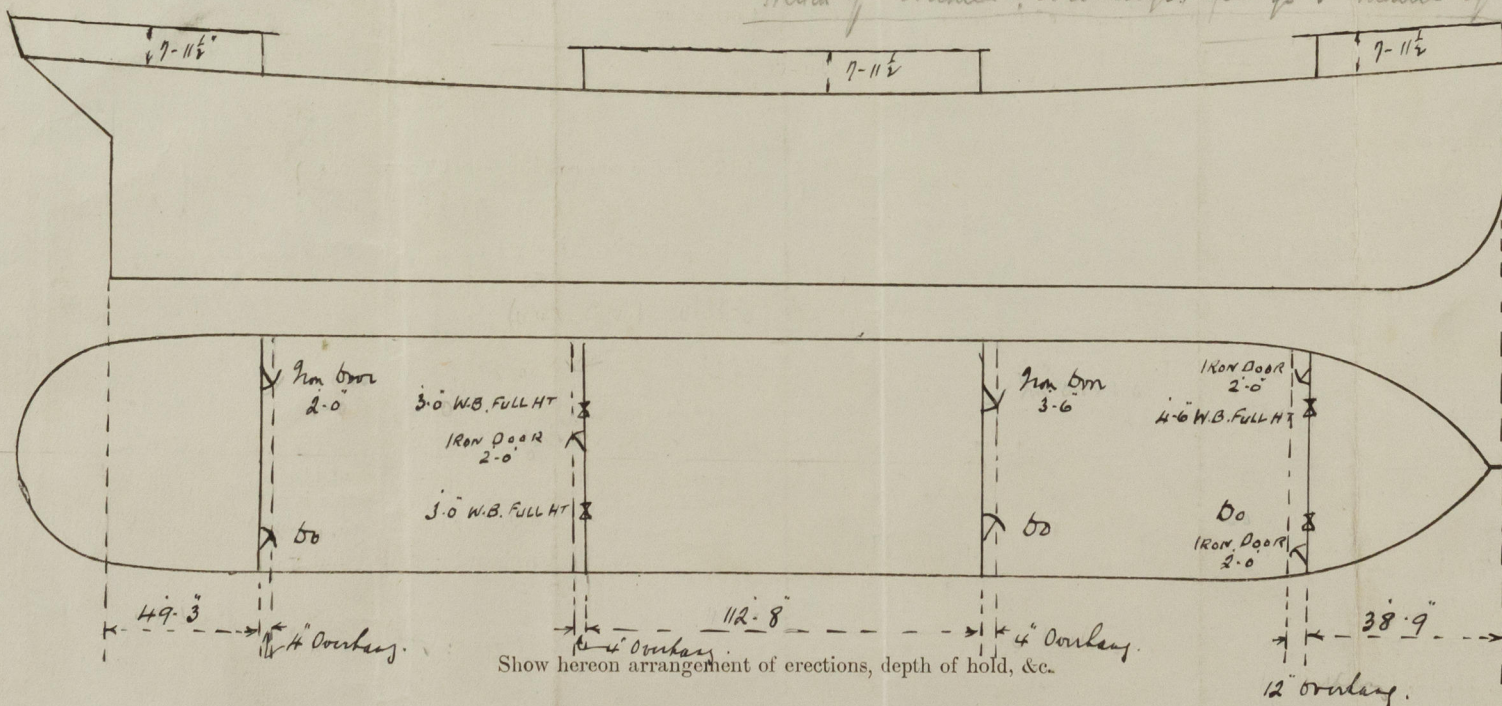 7-11½"
7-11½
7-11½
Iron Door
2'-0"
3'-0" W.B. FULL HT
IRON DOOR
2'-0"
3'-0" W.B. FULL HT
Do
Iron Door
3'-6"
Do
IRON DOOR
2'-0"
4'-6" W.B. FULL HT
Do
IRON DOOR
2'-0
49'-3"
112'-8"
38'-9"
4" Overhang.
4" Overhang.
4" Overhang.
12" Overhang.
Show hereon arrangement of erections, depth of hold, &c.